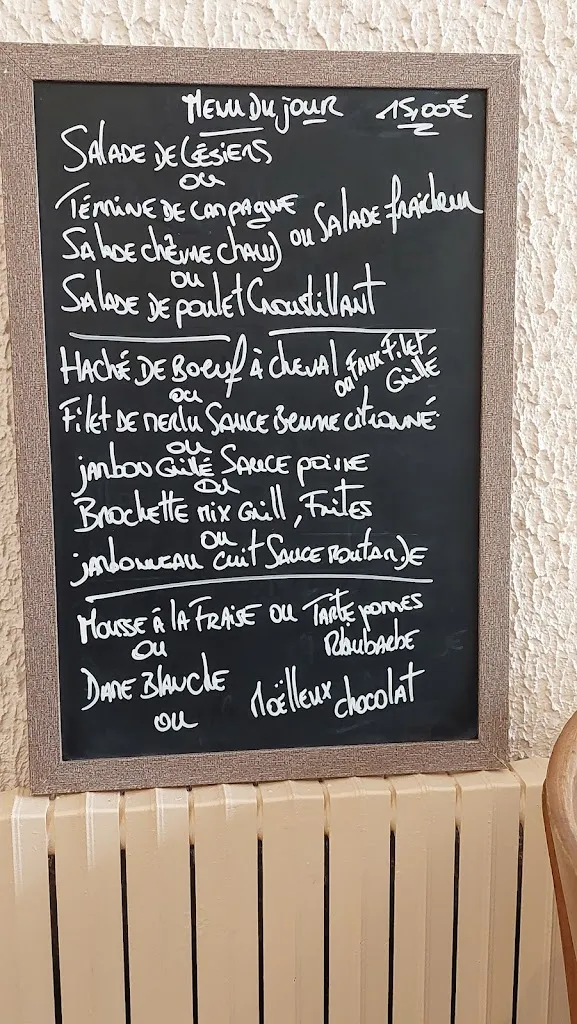 Menu du jour 15,00€
Salade de Gésiers
ou
Terrine de campagne
Salade chèvre chaud ou Salade fraîcheur
ou
Salade de poulet Croustillant
Haché de Boeuf à cheval ou Faux Filet Grillé
ou
Filet de merlu Sauce Beurre citronné
ou
jambon Grillé Sauce poivre
ou
Brochette mix Grill, Frites
ou
jambonneau cuit Sauce moutarde
Mousse à la Fraise ou Tarte pommes
Rhubarbe
ou
Dame Blanche
Moëlleux chocolat
ou